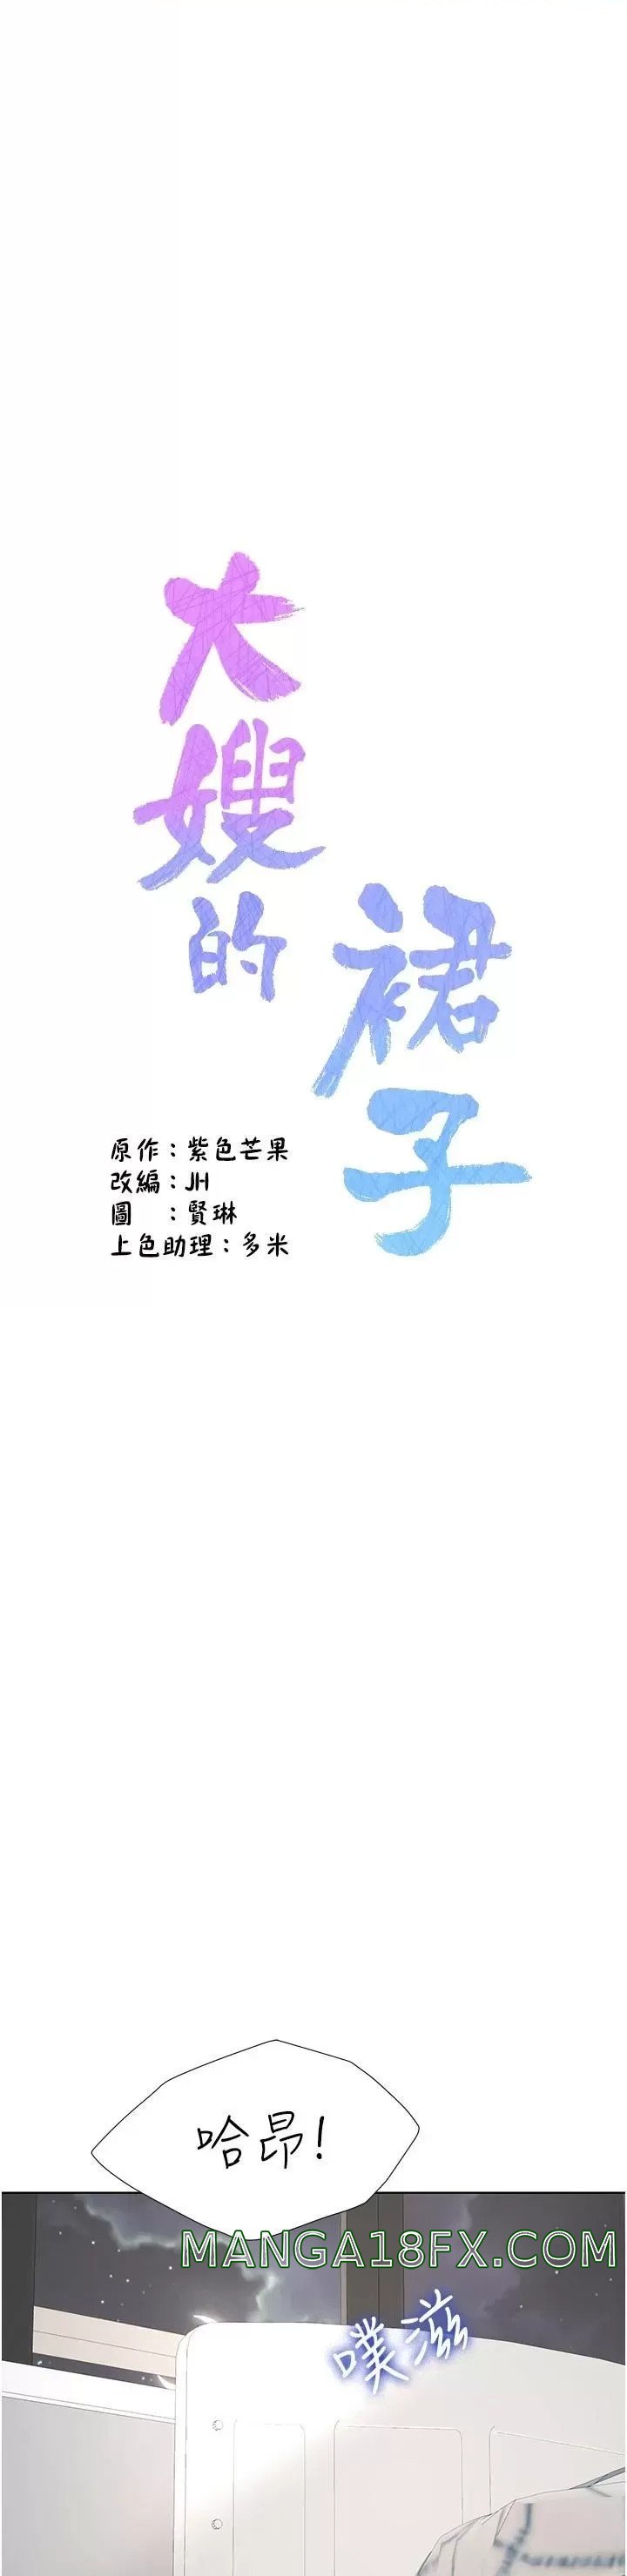 大嫂的
裙子
原作：紫色芒果
改編：JH
圖　：賢琳
上色助理：多米
哈昂！
MANGA18FX.COM
噗滋